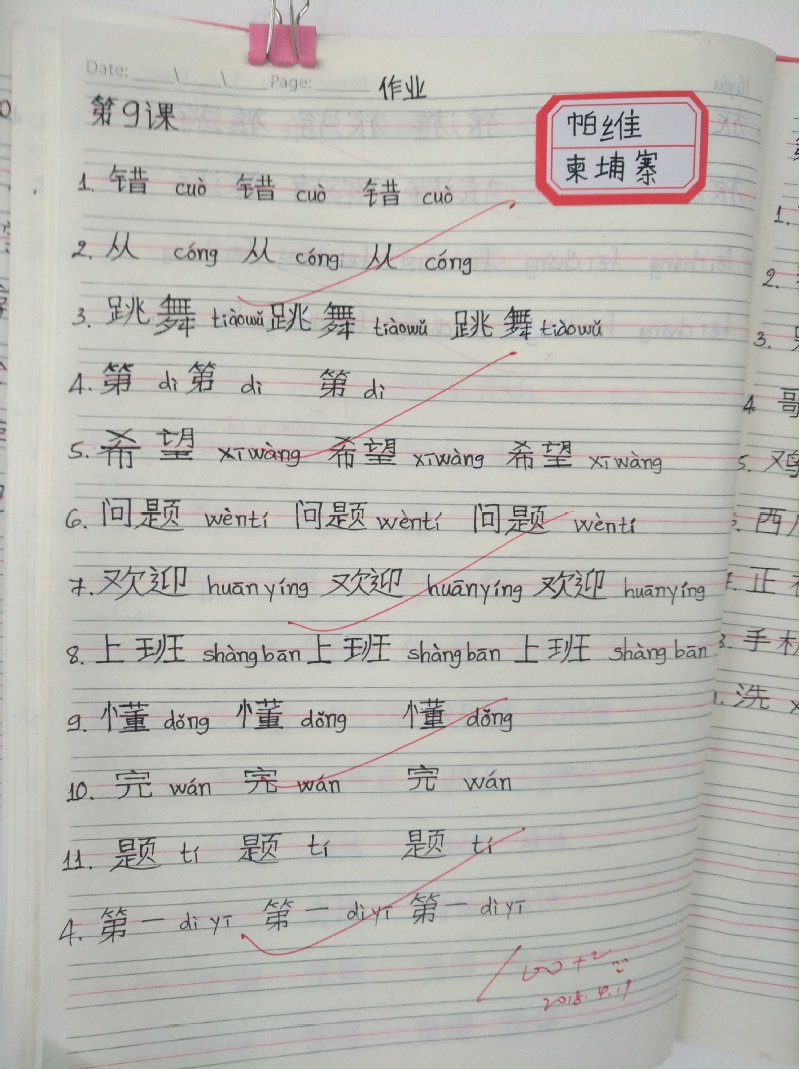 Date: ___\___\___ Page:
作业
第9课
帕维
柬埔寨
1. 错 cuò 错 cuò 错 cuò
2. 从 cóng 从 cóng 从 cóng
3. 跳舞 tiàowǔ 跳舞 tiàowǔ 跳舞 tiàowǔ
4. 第 dì 第 dì 第 dì
5. 希望 xīwàng 希望 xīwàng 希望 xīwàng
6. 问题 wèntí 问题 wèntí 问题 wèntí
7. 欢迎 huānyíng 欢迎 huānyíng 欢迎 huānyíng
8. 上班 shàngbān 上班 shàngbān 上班 shàngbān
9. 懂 dǒng 懂 dǒng 懂 dǒng
10. 完 wán 完 wán 完 wán
11. 题 tí 题 tí 题 tí
4. 第一 dì yī 第一 dì yī 第一 dì yī
100+2
2018.4.19
1.
2.
3.
4 哥
5.
西
正
手
洗